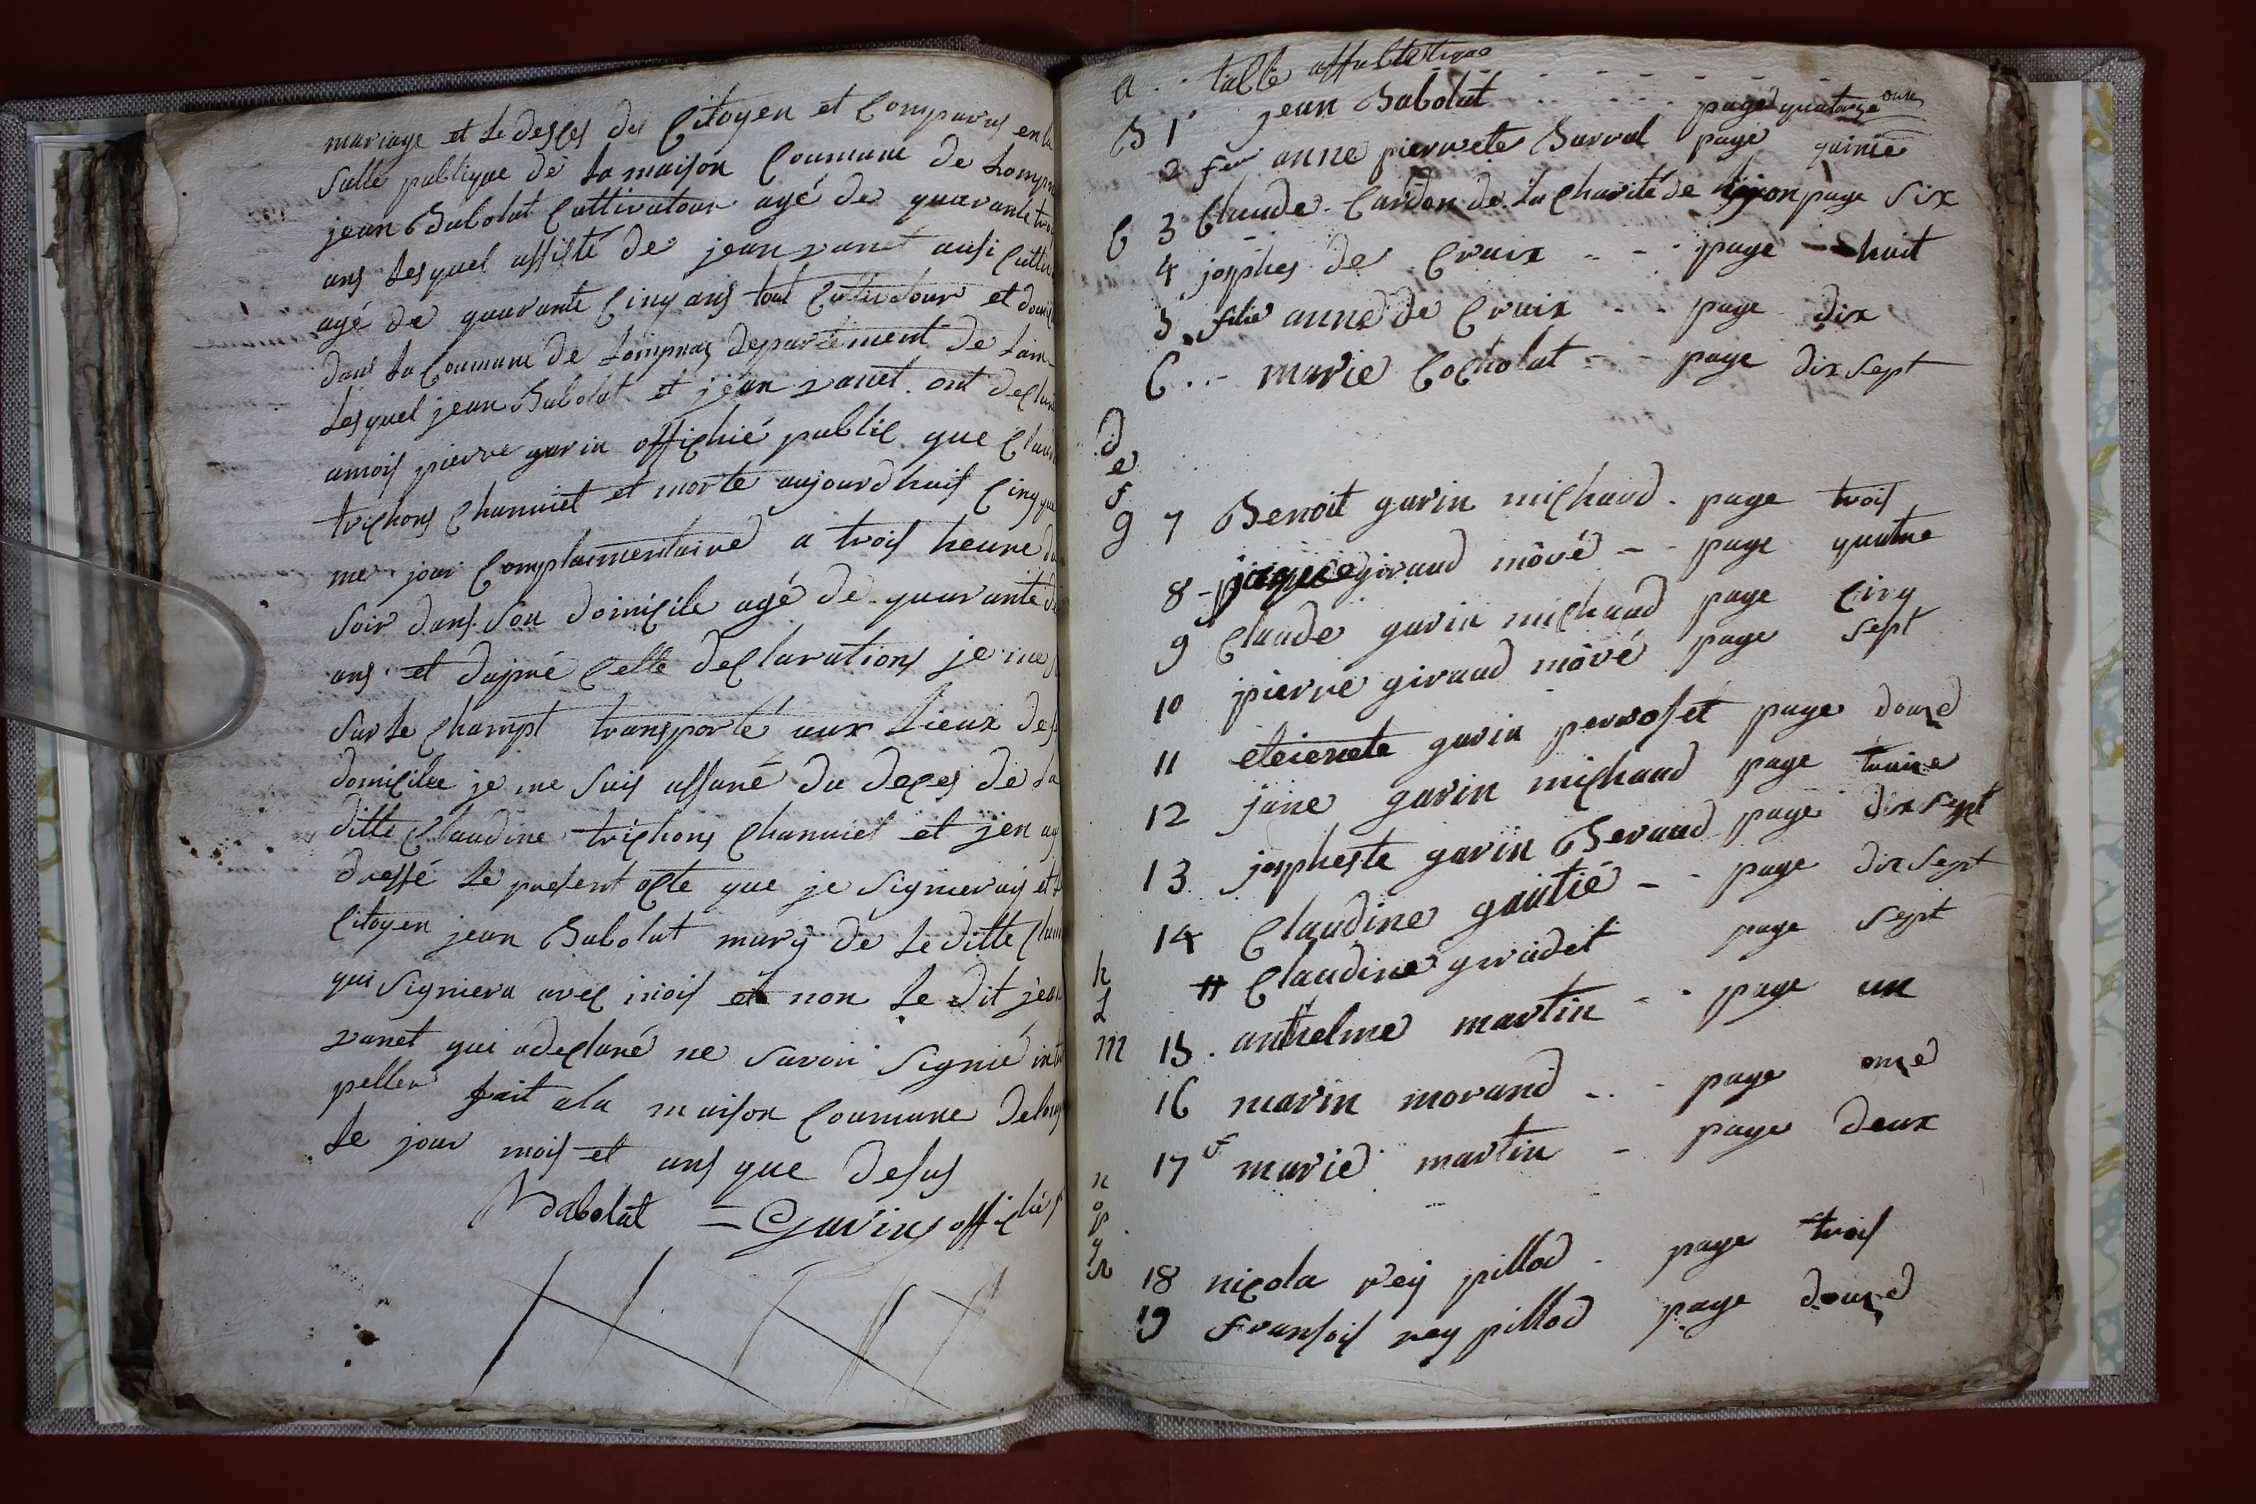 mariage et le desces des Citoyen et Comparus en la
Salle publique de la maison Coumune de Lompn
jean Babolat Cultivatour agé de quarante troi
ans lesquel assisté de jean vanet ausi Cultiv
agé de quarante Cinq ans tout Cultivatour et domic
dans la Coumune de Lompnas departement de Lain
Lesquel jean Babolat et jean vanet ont declaré
amois pierre garin offichié public que Claud
trichons Channiet et morte aujourdhuis Cinq que
me jour Complaimentaired a trois heure du
Soir dans Son domicile agé de quarante de
ans et dapré Celle declarations je me
Sur le Champt transporté aux Lieux de
domicilee je me Suis assuré du deces de La
ditte Claudine trichons Channiet et jen ay
dressé Le present acte que je Signierais et
Citoyen jean Babolat mary de Le ditte Clau
qui Signiera avec mois et non Le dit jean
vanet qui adeclaré ne Savoir Signié int
peller fait ala maison Coumune delom
Le jour mois et ans que desus
Babolat = Garins offichié
a . . table
B 1 jean Babolat . . . . page quatorze
2 fem anne pierrete Barral page quinze
C 3 Claude Cardon de la Charité de lyon page Six
4 josphes de Craix - - page - huit
5 filie anne de Craix - - page dix
C . . - marie Cocholat - - page dix Sept
d
e
f
g 7 Benoit garin michaud . page trois
8 - giraud môvé - - page quatre
9 Claude garin michaud page Cinq
10 pierre giraud môvé page Sept
11 eteienete garin perroset page douze
12 jane garin michaud page traize
13 jospheste garin Beraud page dix Sept
14 Claudine gautié - - page dix Sept
h # Claudine giradet page Sept
L
m 15 . anthelme martin - - page un
16 marin morand . . - page onze
17 f marie martin - page deux
n
o
p
q
R 18 nicola rey pillod - page trois
19 fransois rey pillod page douze